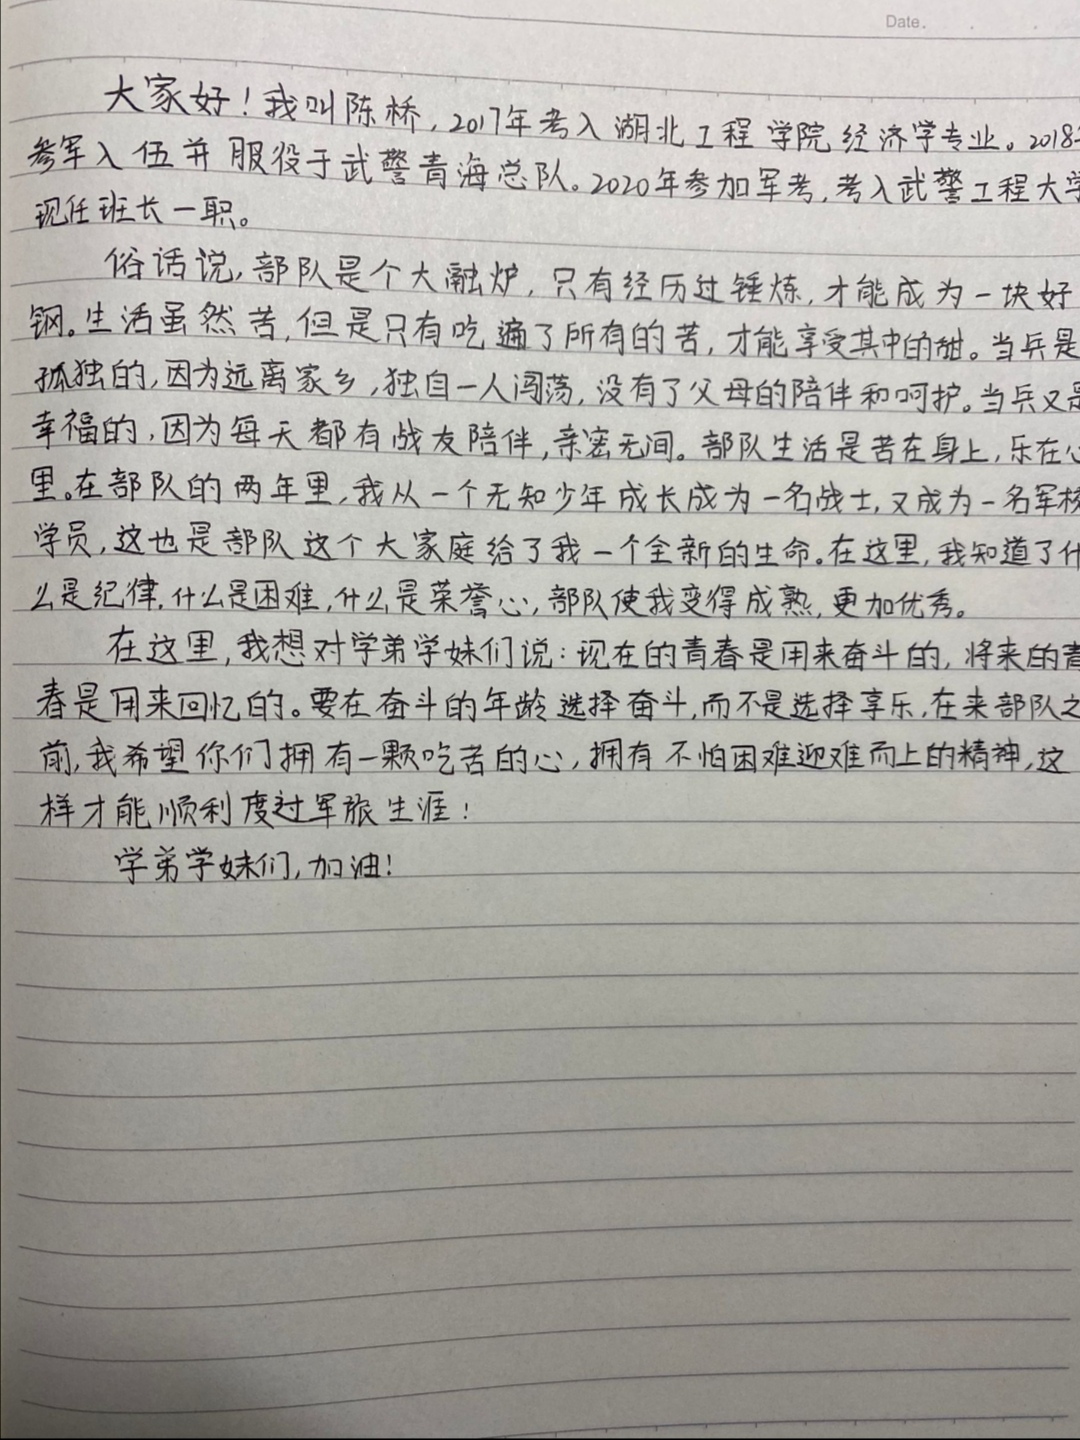 Date.
大家好！我叫陈桥，2017年考入湖北工程学院经济学专业。2018
参军入伍并服役于武警青海总队。2020年参加军考，考入武警工程大学
现任班长一职。
俗话说，部队是个大融炉，只有经历过锤炼，才能成为一块好
钢。生活虽然苦，但是只有吃遍了所有的苦，才能享受其中的甜。当兵是
孤独的，因为远离家乡，独自一人闯荡，没有了父母的陪伴和呵护。当兵又是
幸福的，因为每天都有战友陪伴，亲密无间。部队生活是苦在身上，乐在心
里。在部队的两年里，我从一个无知少年成长成为一名战士，又成为一名军校
学员，这也是部队这个大家庭给了我一个全新的生命。在这里，我知道了什
么是纪律，什么是困难，什么是荣誉心，部队使我变得成熟，更加优秀。
在这里，我想对学弟学妹们说：现在的青春是用来奋斗的，将来的青
春是用来回忆的。要在奋斗的年龄选择奋斗，而不是选择享乐，在来部队之
前，我希望你们拥有一颗吃苦的心，拥有不怕困难迎难而上的精神，这
样才能顺利度过军旅生涯！
学弟学妹们，加油！